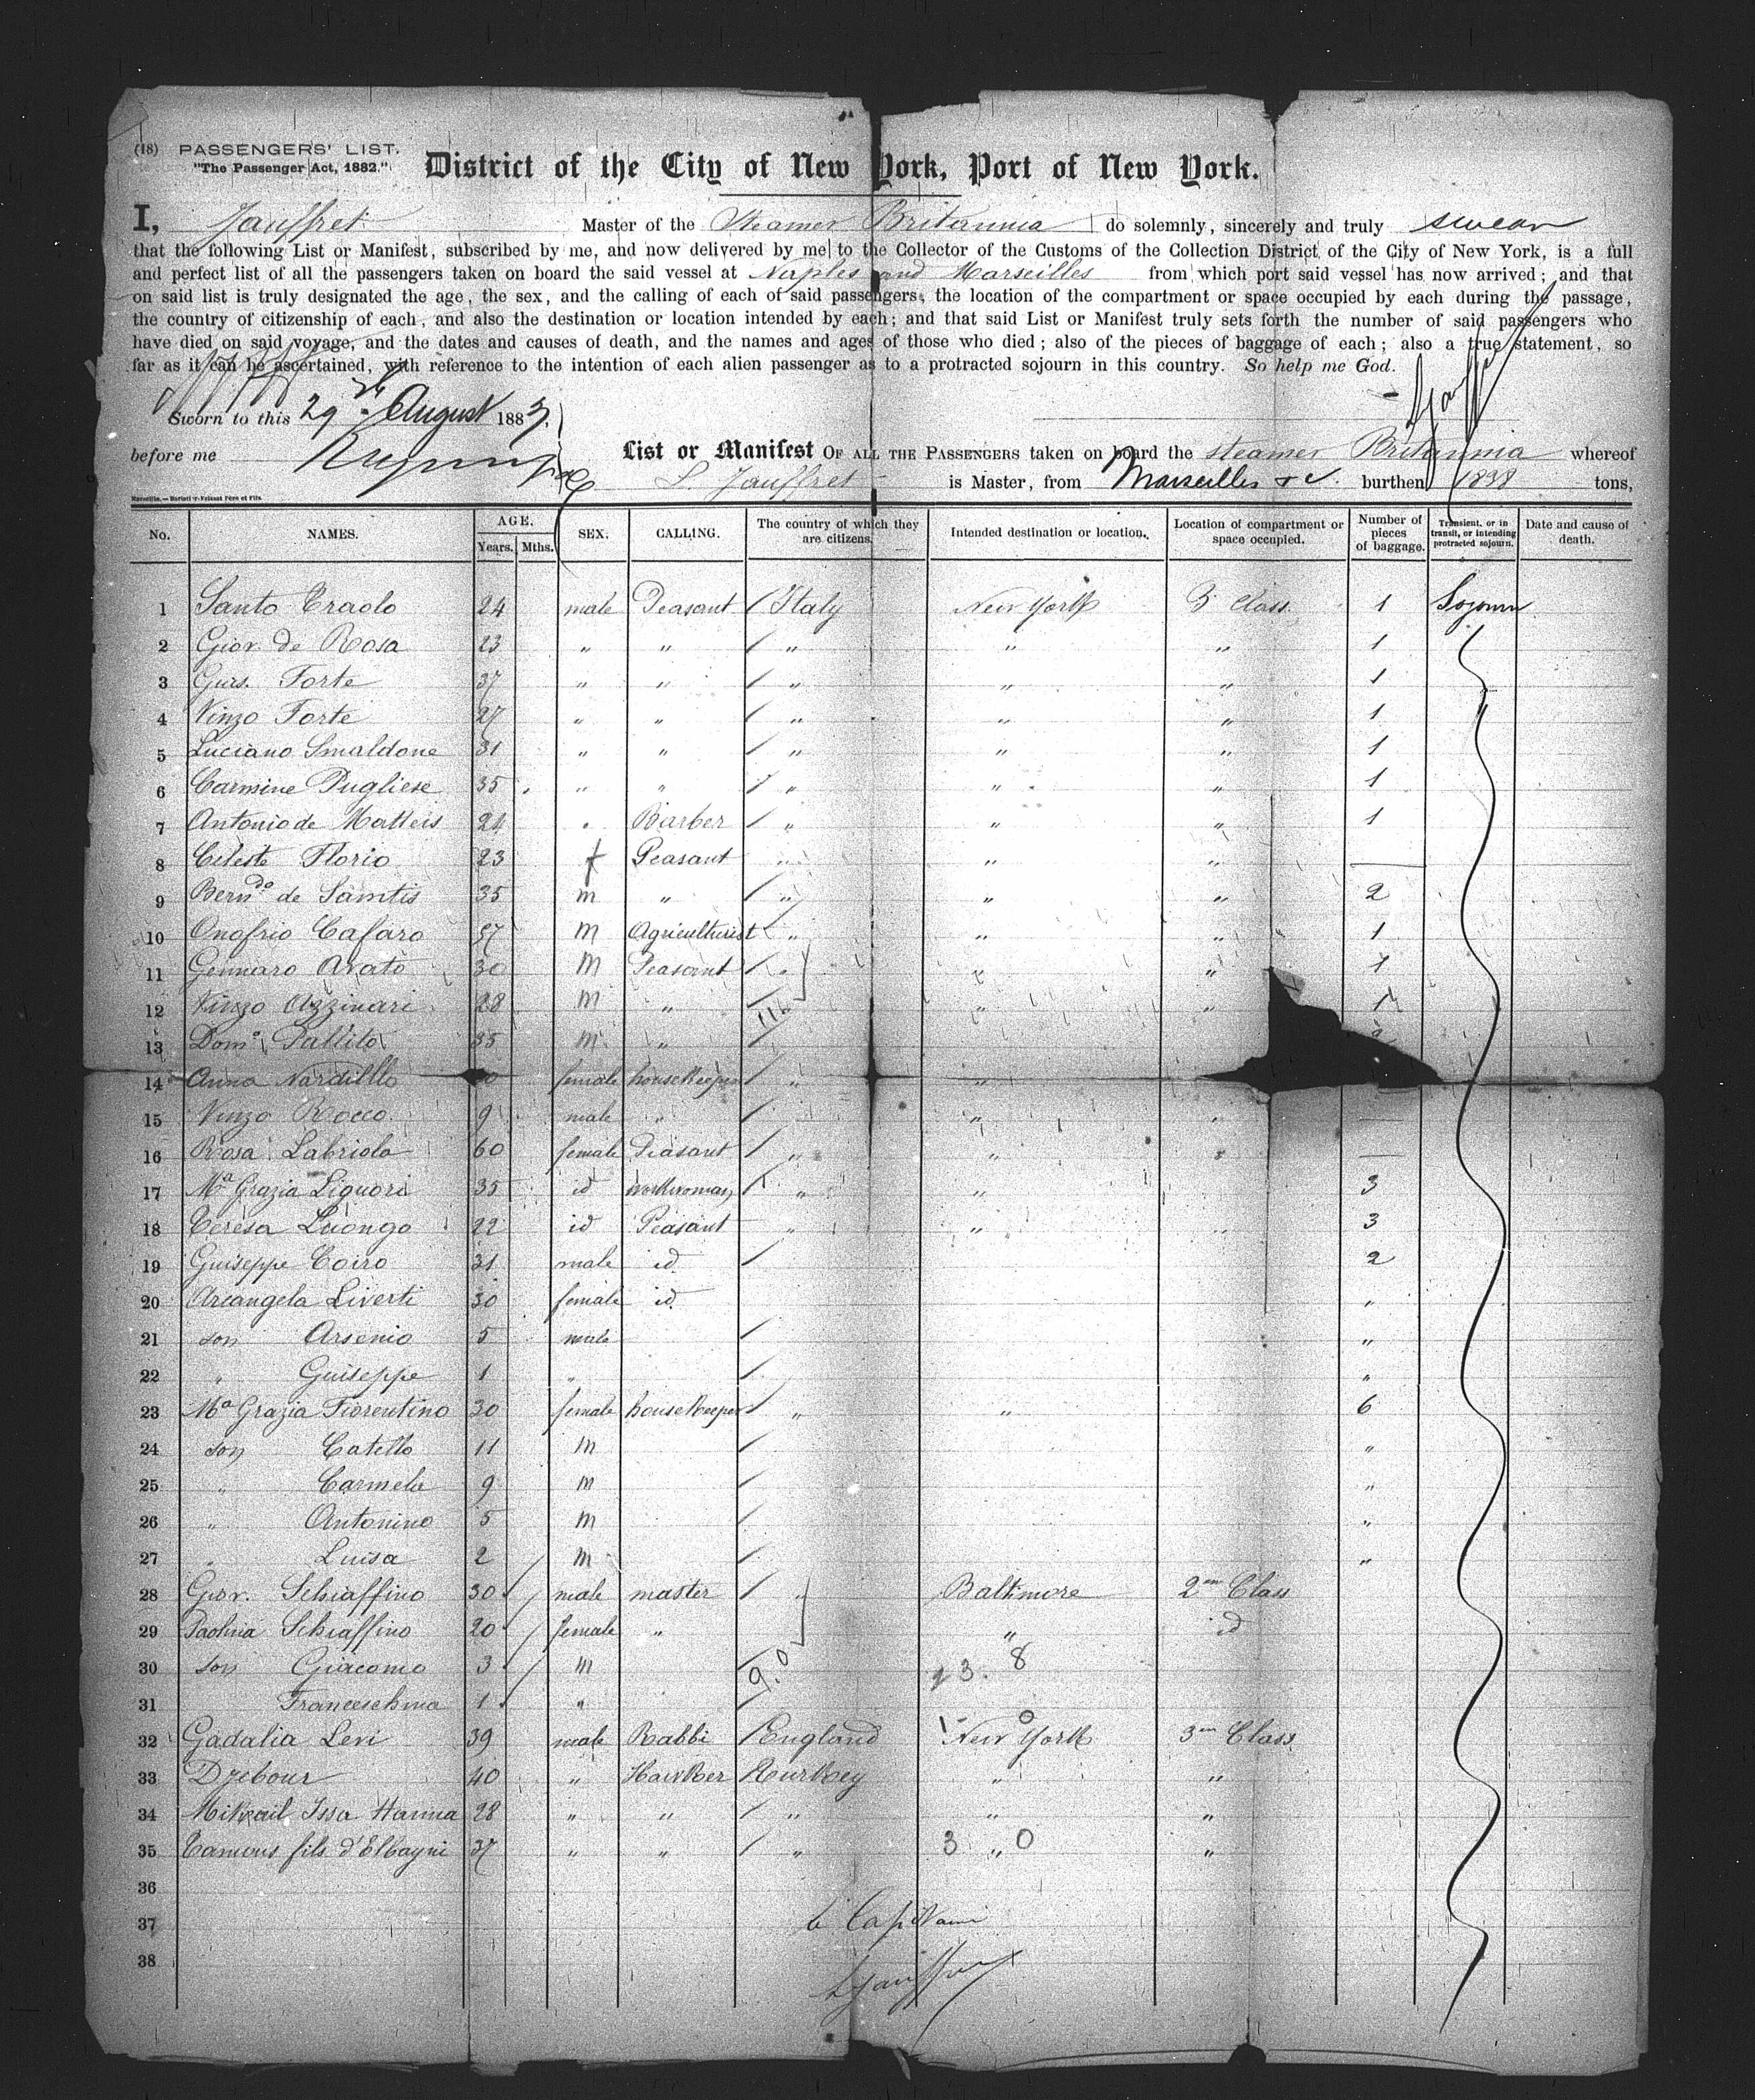 (18) PASSENGERS' LIST.
"The Passenger Act, 1882."
District of the City of New York, Port of New York.
I, Jauffret Master of the Steamer Britannia do solemnly, sincerely and truly swear
that the following List or Manifest, subscribed by me, and now delivered by me to the Collector of the Customs of the Collection District of the City of New York, is a full
and perfect list of all the passengers taken on board the said vessel at Naples and Marseilles from which port said vessel has now arrived; and that
on said list is truly designated the age, the sex, and the calling of each of said passengers, the location of the compartment or space occupied by each during the passage,
the country of citizenship of each, and also the destination or location intended by each; and that said List or Manifest truly sets forth the number of said passengers who
have died on said voyage, and the dates and causes of death, and the names and ages of those who died; also of the pieces of baggage of each; also a true statement, so
far as it can be ascertained, with reference to the intention of each alien passenger as to a protracted sojourn in this country. So help me God.
Sworn to this 29 August 188
before me
List or Manifest OF ALL THE PASSENGERS taken on board the steamer Britannia whereof
L. Jauffret is Master, from Marseilles & c. burthen 1898 tons,
No. NAMES. AGE. Years. Mths. SEX. CALLING. The country of which they are citizens. Intended destination or location. Location of compartment or space occupied. Number of pieces of baggage. Transient, or in transit, or intending protracted sojourn. Date and cause of death.
1 Santo Eraolo 24 male Peasant Italy New York 3 Class. 1 Sojourn
2 Giov. de Rosa 23 " " " " " 1
3 Gius. Forte 37 " " " " " 1
4 Vinzo Forte 27 " " " " " 1
5 Luciano Smaldone 31 " " " " " 1
6 Carmine Pugliese 35 " " " " " 1
7 Antonio de Matteis 24 " Barber " " " 1
8 Celeste Florio 23 f Peasant " " "
9 Bern.do de Santis 35 m " " " " 2
10 Onofrio Cafaro 57 m Agriculturist " " " 1
11 Gennaro Avato 30 m Peasant " " " 1
12 Vinzo Azzinari 28 m " " " 1
13 Dom.o Pallito 35 m "
14 Anna Nardillo female housekeeper " "
15 Vinzo Rocco 9 male " "
16 Rosa Labriola 60 female Peasant " " "
17 Ma Grazia Liguori 35 id workwoman " " 3
18 Teresa Luongo 22 id Peasant " " " 3
19 Guiseppe Coiro 31 male id 2
20 Arcangela Liverti 30 female id. "
21 son Arsenio 5 male "
22 " Guiseppe 1 " "
23 Ma Grazia Fiorentino 30 female housekeeper " " 6
24 son Catello 11 m "
25 " Carmela 9 m "
26 " Antonino 5 m "
27 " Luisa 2 m "
28 Giov. Schiaffino 30 male master " Baltimore 2em Class
29 Paolina Schiaffino 20 female " " id
30 son Giacomo 3 m
31 Franceschina 1 "
32 Gadalia Levi 39 male Rabbi England New York 3em Class
33 Djebour 40 " Hawker Turkey " "
34 Mikail Issa Hanna 28 " " " " "
35 Tamous fils d'Elbayni 37 " " " " "
36
37
38